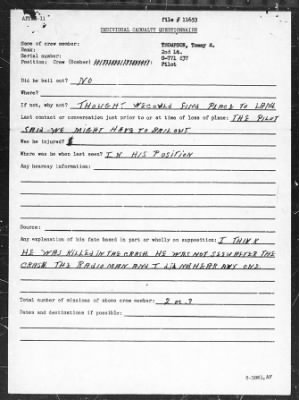 File # 11653
INDIVIDUAL CASUALTY QUESTIONNAIRE
Name of crew member: THOMPSON, Tommy A.
Rank: 2nd Lt.
Serial number: O-771 237
Position: Crew (Bomber) Pilot
Did he bail out? NO
Where?
If not, why not? THOUGHT WE COULD FIND PLACE TO LAND
Last contact or conversation just prior to or at time of loss of plane: THE PILOT
SAID WE MIGHT HAVE TO BAILOUT
Was he injured?
Where was he when last seen? IN HIS POSITION
Any hearsay information:
Source:
Any explanation of his fate based in part or wholly on supposition: I THINK
HE WAS KILLED IN THE CRASH HE WAS NOT SEEN AFTER THE
CRASH THE RADIOMAN AND I did NOT HEAR ANY ONE
Total number of missions of above crew member: 2 or ?
Dates and destinations if possible: